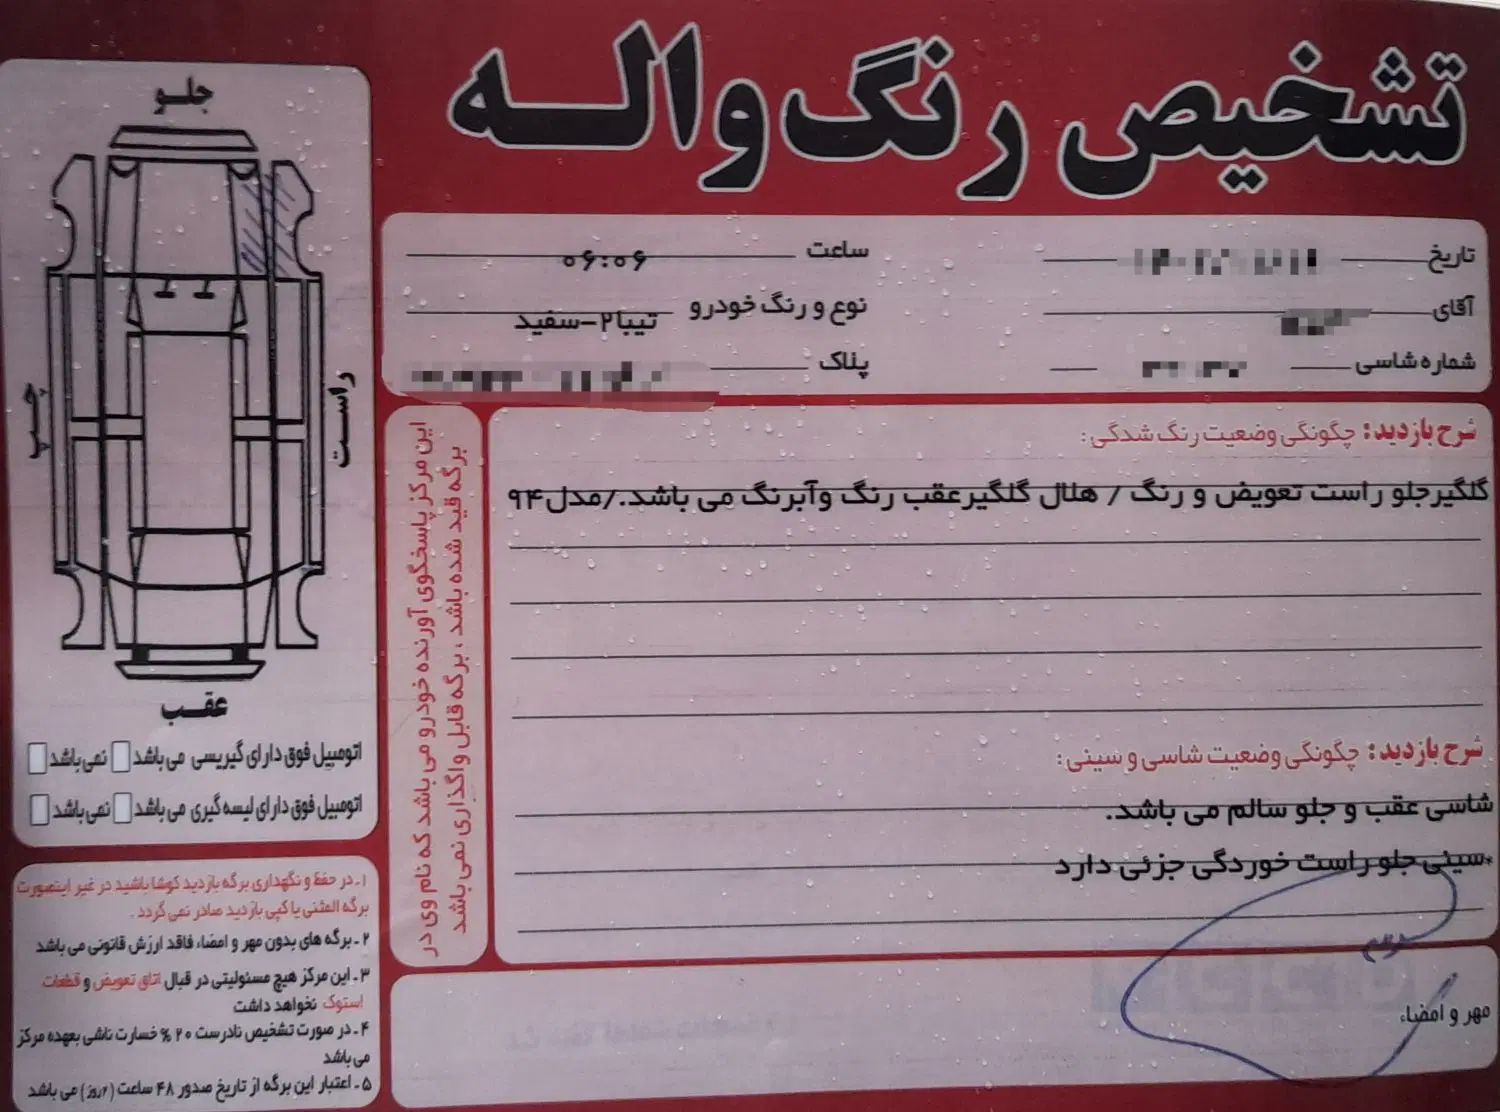 تشخیص رنگ واله
تاریخ
ساعت ۰۶:۰۶
آقای
نوع و رنگ خودرو تیبا۲-سفید
شماره شاسی
پلاک
جلو
چپ
راست
عقب
اتومبیل فوق دارای گیریسی می باشد نمی باشد
اتومبیل فوق دارای لیسه گیری می باشد نمی باشد
این مرکز پاسخگوی آورنده خودرو می باشد که نام وی در
برگه قید شده باشد ، برگه قابل واگذاری نمی باشد
شرح بازدید : چگونگی وضعیت رنگ شدگی :
گلگیرجلو راست تعویض و رنگ / هلال گلگیرعقب رنگ وآبرنگ می باشد./مدل۹۴
شرح بازدید : چگونگی وضعیت شاسی و سینی :
شاسی عقب و جلو سالم می باشد.
*سینی جلو راست خوردگی جزئی دارد
مهر و امضاء
۱ـ در حفظ و نگهداری برگه بازدید کوشا باشید در غیر اینصورت
برگه المثنی یا کپی بازدید صادر نمی گردد .
۲ـ برگه های بدون مهر و امضاء فاقد ارزش قانونی می باشد
۳ـ این مرکز هیچ مسئولیتی در قبال اتاق تعویض و قطعات
استوک نخواهد داشت
۴ـ در صورت تشخیص نادرست ۲۰ % خسارت ناشی بعهده مرکز
می باشد
۵ـ اعتبار این برگه از تاریخ صدور ۴۸ ساعت (۲روز) می باشد